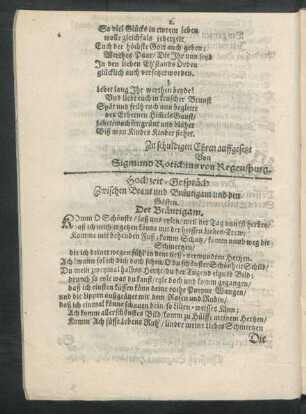 2.
So viel Glücks in ewrem leben
wolle gleichfals jederzeit
Euch der höchste Gott auch geben:
Werthes Paar/ Die Ihr nun seyd
In den lieben Ehstands Orden
glücklich auch versetzet worden.
3.
Lebet lang Ihr werthen beyde!
Und liebt euch in keuscher Brunst
Spät und früh euch nun begleite
des Erbetnen Himmels Gunst/
Biß man Kindes Kinder siehet.
Zu schuldigen Ehren auffgesetzt
Von
Sigmund von Regenspurg.
Hochzeit-Gespräch
Zwischen Braut und Bräutigam und den
Gästen.
Der Bräutigam.
KOmm O Schönste/ laß uns eylen/ weil der Tag nun ist herbey/
daß ich mich ergetzen könne mit der heissen Liebes-Trew/
Komme mit behenden Fuß/ komm Schatz/ komm nauh weg die
Schmertzen/
die ich deinet wegen fühl in dem tieff-verwundten Hertzen.
Ach! wann sol ich dich doch sehen, O du schönster Schönheit Schild/
Du mein zweymal halbes Hertz/ du der Tugend eignes Bild;
drumb so eyle was du kanst/ eyle doch und komm gegangen/
daß ich einsten küssen könn deine rothe Purpur Wangen/
und die Lippen außgezihret mit dem Rosen und Rubin/
daß ich einmal könne schauen dein/ O Lilgen-weisses Kinn;
Ach komm allerschönstes Bild/ komm zu Hülffe meinem Hertzen/
Komm Ach süsse Lebens Ruh/ lindre meine Liebes Schmertzen
Die